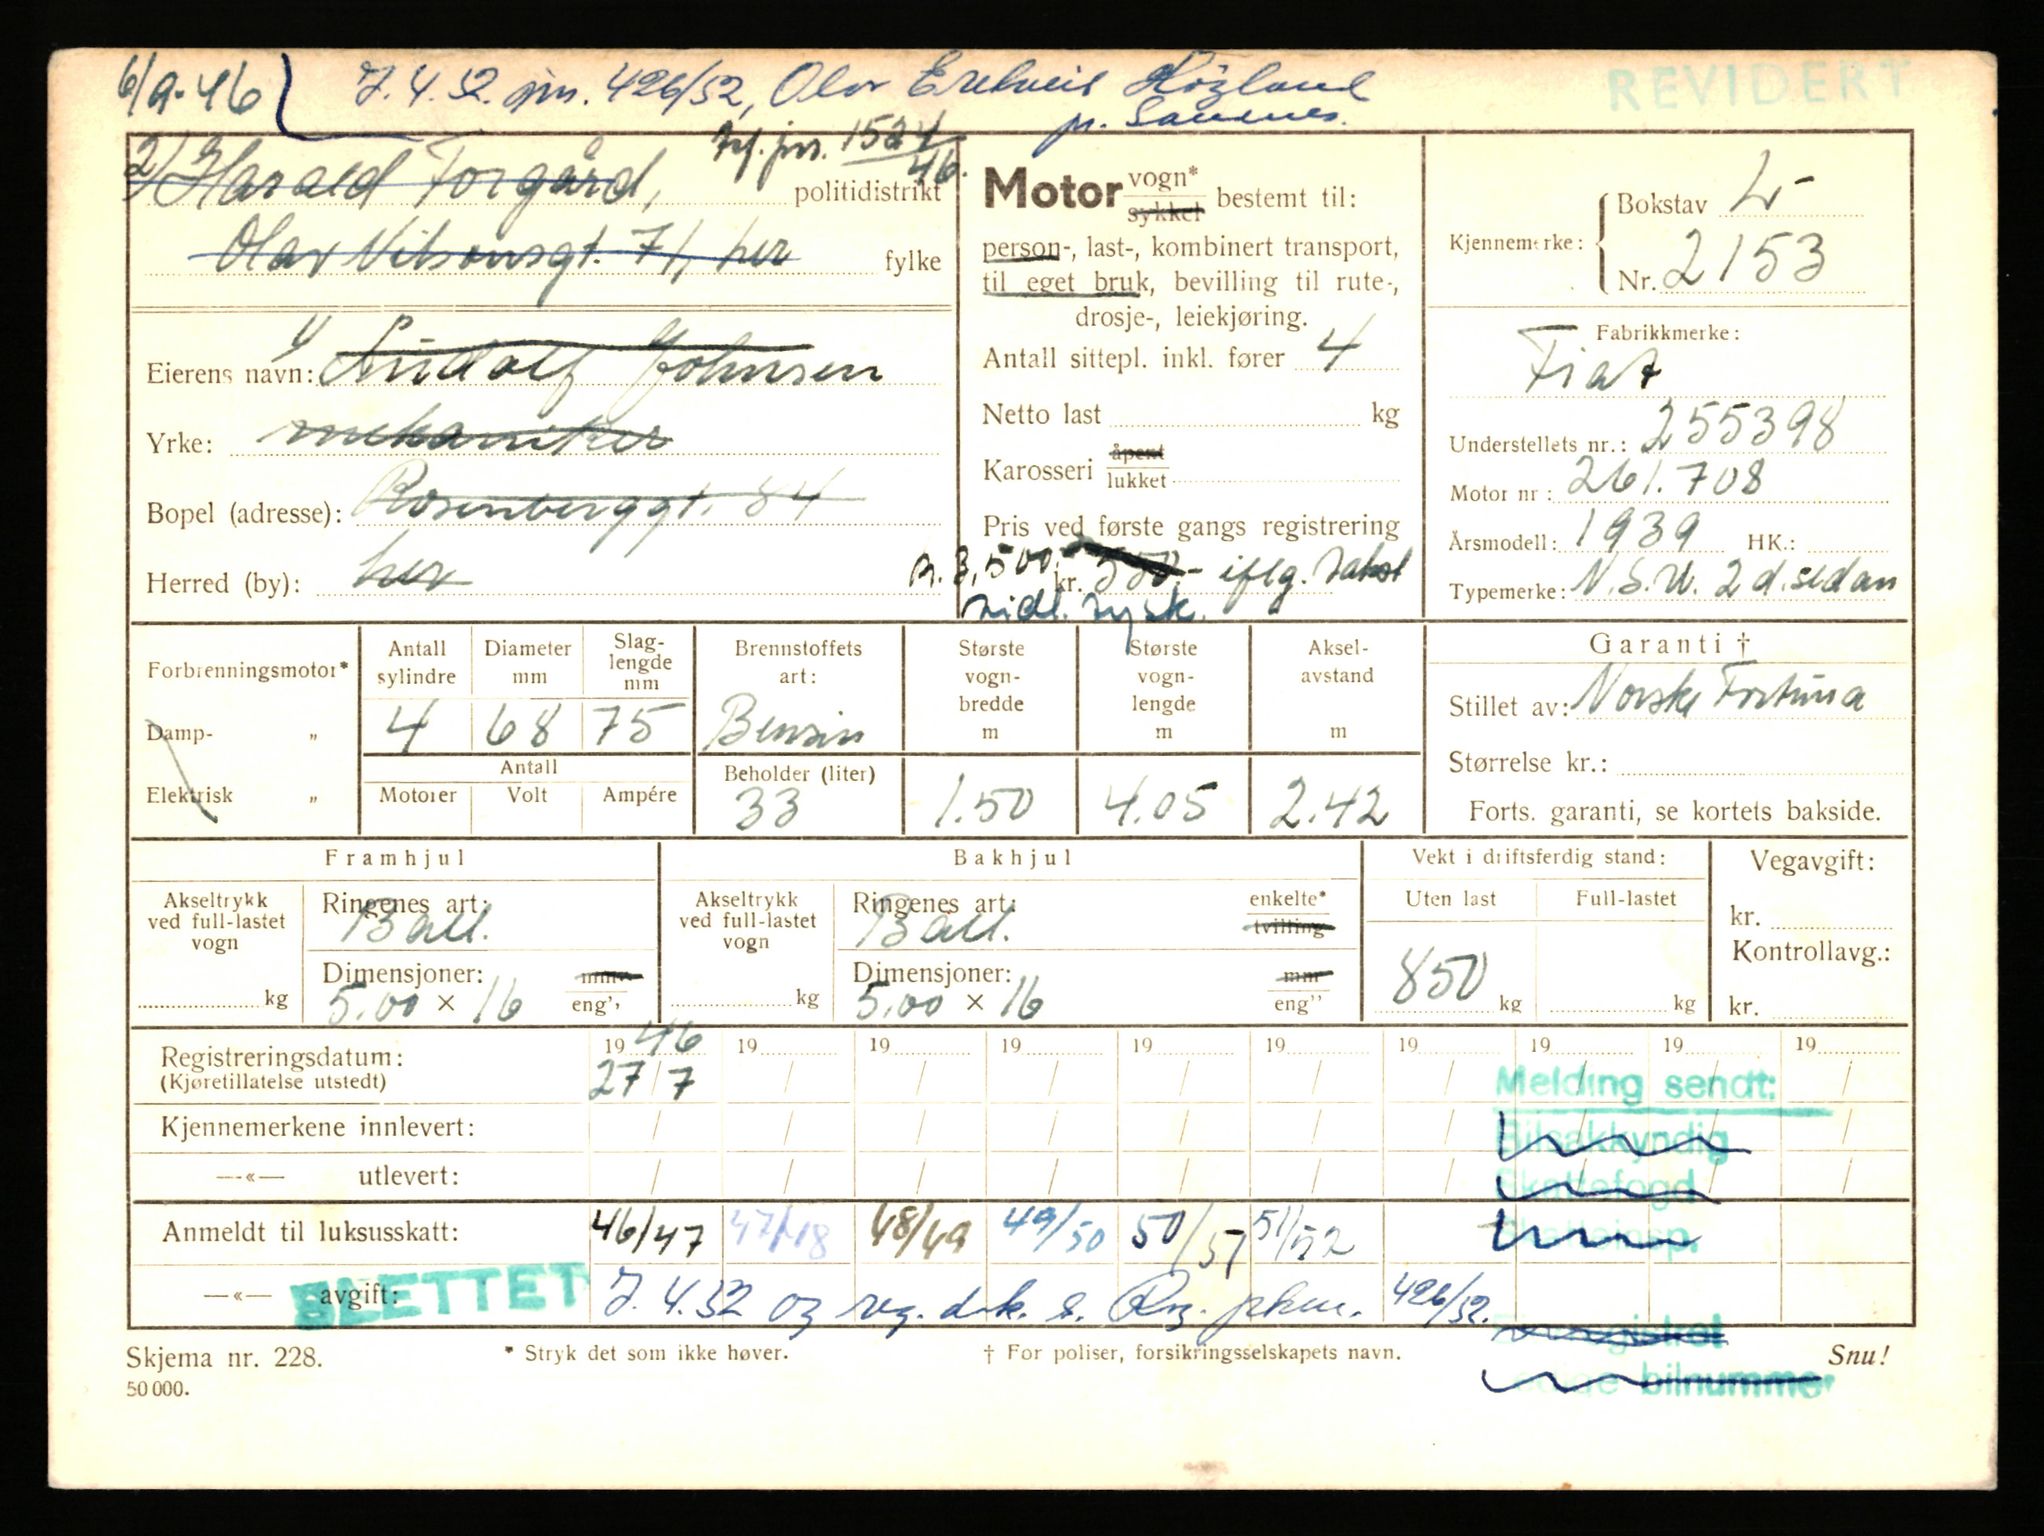 6/9-46 7.4.52. jnr. 426/52, Olav Høgland
pr. Sandnes.
REVIDERT
2) Harald Torgård, politidistrikt
jnr. 1524/46.
Olav Nilsensgt. 71, her fylke
Eierens navn: 1/ Ludolf Johnsen
Yrke: mekaniker
Bopel (adresse): Rosenberggt. 84
Herred (by): her
Motor vogn* sykkel bestemt til:
person-, last-, kombinert transport,
til eget bruk, bevilling til rute-,
drosje-, leiekjøring.
Antall sittepl. inkl. fører 4
Netto last kg
Karosseri åpent lukket
Pris ved første gangs registrering
3,500,- kr. 550,- iflg. takst
tidl. tysk.
Kjennemerke: Bokstav L-
Nr. 2153
Fabrikkmerke:
Fiat
Understellets nr.: 255398
Motor nr: 261.708
Årsmodell: 1939 HK.:
Typemerke: N.S.U. 2 d. sedan
Forbrenningsmotor*
Damp- „
Elektrisk „
Antall sylindre Diameter mm Slaglengde mm
4 68 75
Antall
Motorer Volt Ampére
Brennstoffets art:
Bensin
Beholder (liter)
33
Største vognbredde m
1.50
Største vognlengde m
4.05
Akselavstand m
2.42
Garanti †
Stillet av: Norske Fortuna
Størrelse kr.:
Forts. garanti, se kortets bakside.
Framhjul
Akseltrykk ved full-lastet vogn kg
Ringenes art: Ball.
Dimensjoner: mm
5.00 × 16 eng''
Bakhjul
Akseltrykk ved full-lastet vogn kg
Ringenes art: Ball. enkelte* tvilling
Dimensjoner: mm
5.00 × 16 eng''
Vekt i driftsferdig stand:
Uten last Full-lastet
850 kg kg
Vegavgift:
kr.
Kontrollavg.:
kr.
Registreringsdatum: 1946 19 19 19 19 19 19 19 19 19
(Kjøretillatelse utstedt) 27/7
Melding sendt:
Kjennemerkene innlevert:
Bilsakkyndig
—«— utlevert:
Skattefogd
Anmeldt til luksusskatt: 46/47 47/48 48/49 49/50 50/51 51/52
—«— avgift: SLETTET 7.4.52 og reg. 426/52.
bilnummer
Skjema nr. 228. * Stryk det som ikke høver. † For poliser, forsikringsselskapets navn. Snu!
50 000.